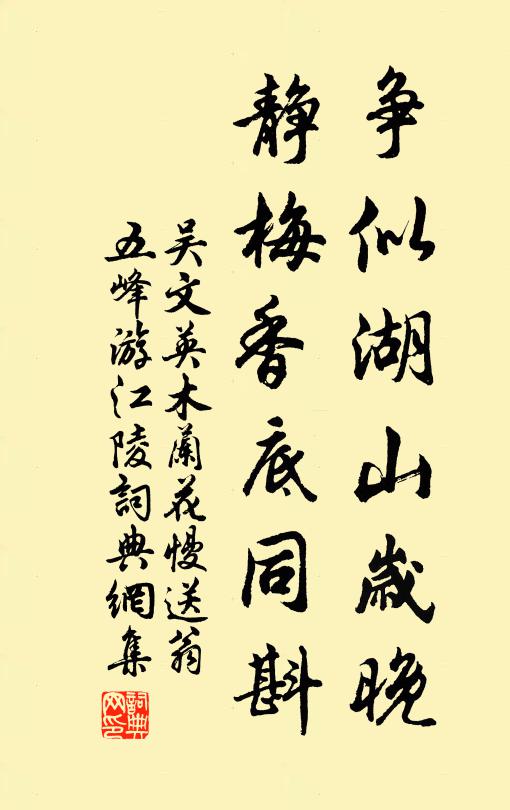 争似湖山歲晚
静梅香底同斟
吴文英木蘭花慢送翁
五峰游江陵詞典網集
詞典网印